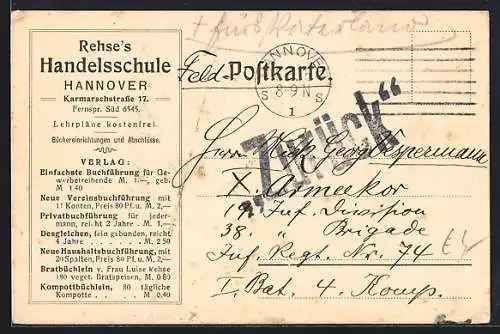 + fürs Vaterland
Rehse's
Handelsschule
HANNOVER
Karmarschstraße 17.
Fernspr. Süd 6545.
Lehrpläne kostenfrei.
Büchereinrichtungen und Abschlüsse.
VERLAG:
Einfachste Buchführung für Ge-
werbetreibende M. 1.—, geb.
M 1.40
Neue Vereinsbuchführung mit
11 Konten, Preis 80 Pf. u. M. 2,—
Privatbuchführung für jeder-
mann, reicht 2 Jahre M. 1,—
Desgleichen, fein gebunden, reicht
4 Jahre . . . . . M 2.50
Neue Haushaltsbuchführung, mit
20 Spalten, Preis 80 Pf. u. M. 2,—
Bratbüchlein v. Frau Luise Rehse
180 veget. Bratspeisen, M. 0.80
Kompottbüchlein, 80 tägliche
Kompotte . . . . M 0.40
Feld-Postkarte.
HANNOVER
S 8-9 N S
1
"Zurück"
Herrn Georg Aspermann
X. Armeekor
19. Inf. Division
38. " Brigade
Inf. Regt. Nr. 74
I. Bat. 4. Komp.